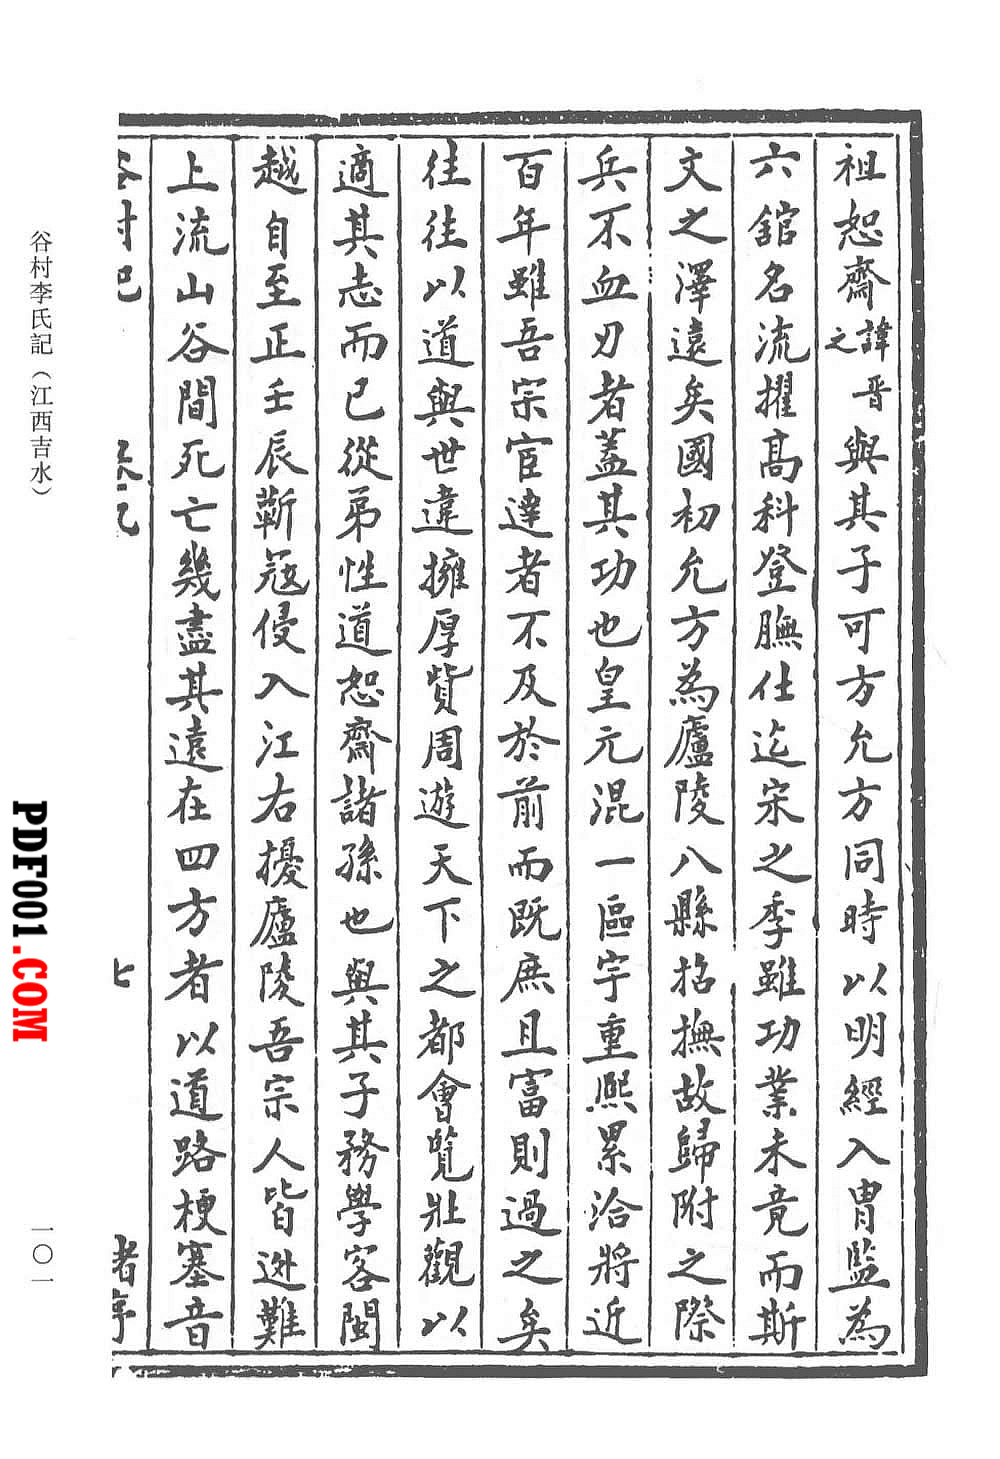 祖恕齋諱之晋與其子可方允方同時以明經入胄監為
六館名流擢髙科登膴仕迄宋之季雖功業未竟而斯
文之澤遠矣國初允方為廬陵八縣招撫故歸附之際
兵不血刃者蓋其功也皇元混一區宇重熙累洽將近
百年雖吾宗宦達者不及於前而既庶且富則過之矣
往往以道與世違擁厚貲周遊天下之都會覽壯觀以
適其志而已從弟性道恕齋諸孫也與其子務學客閩
越自至正壬辰蘄冦侵入江右擾廬陵吾宗人皆迯難
上流山谷間死亡幾盡其遠在四方者以道路梗塞音
谷村李氏記（江西吉水）
一〇一
PDF001.COM